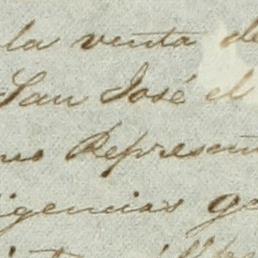 la venta de
San José el
Represen
igencias ge